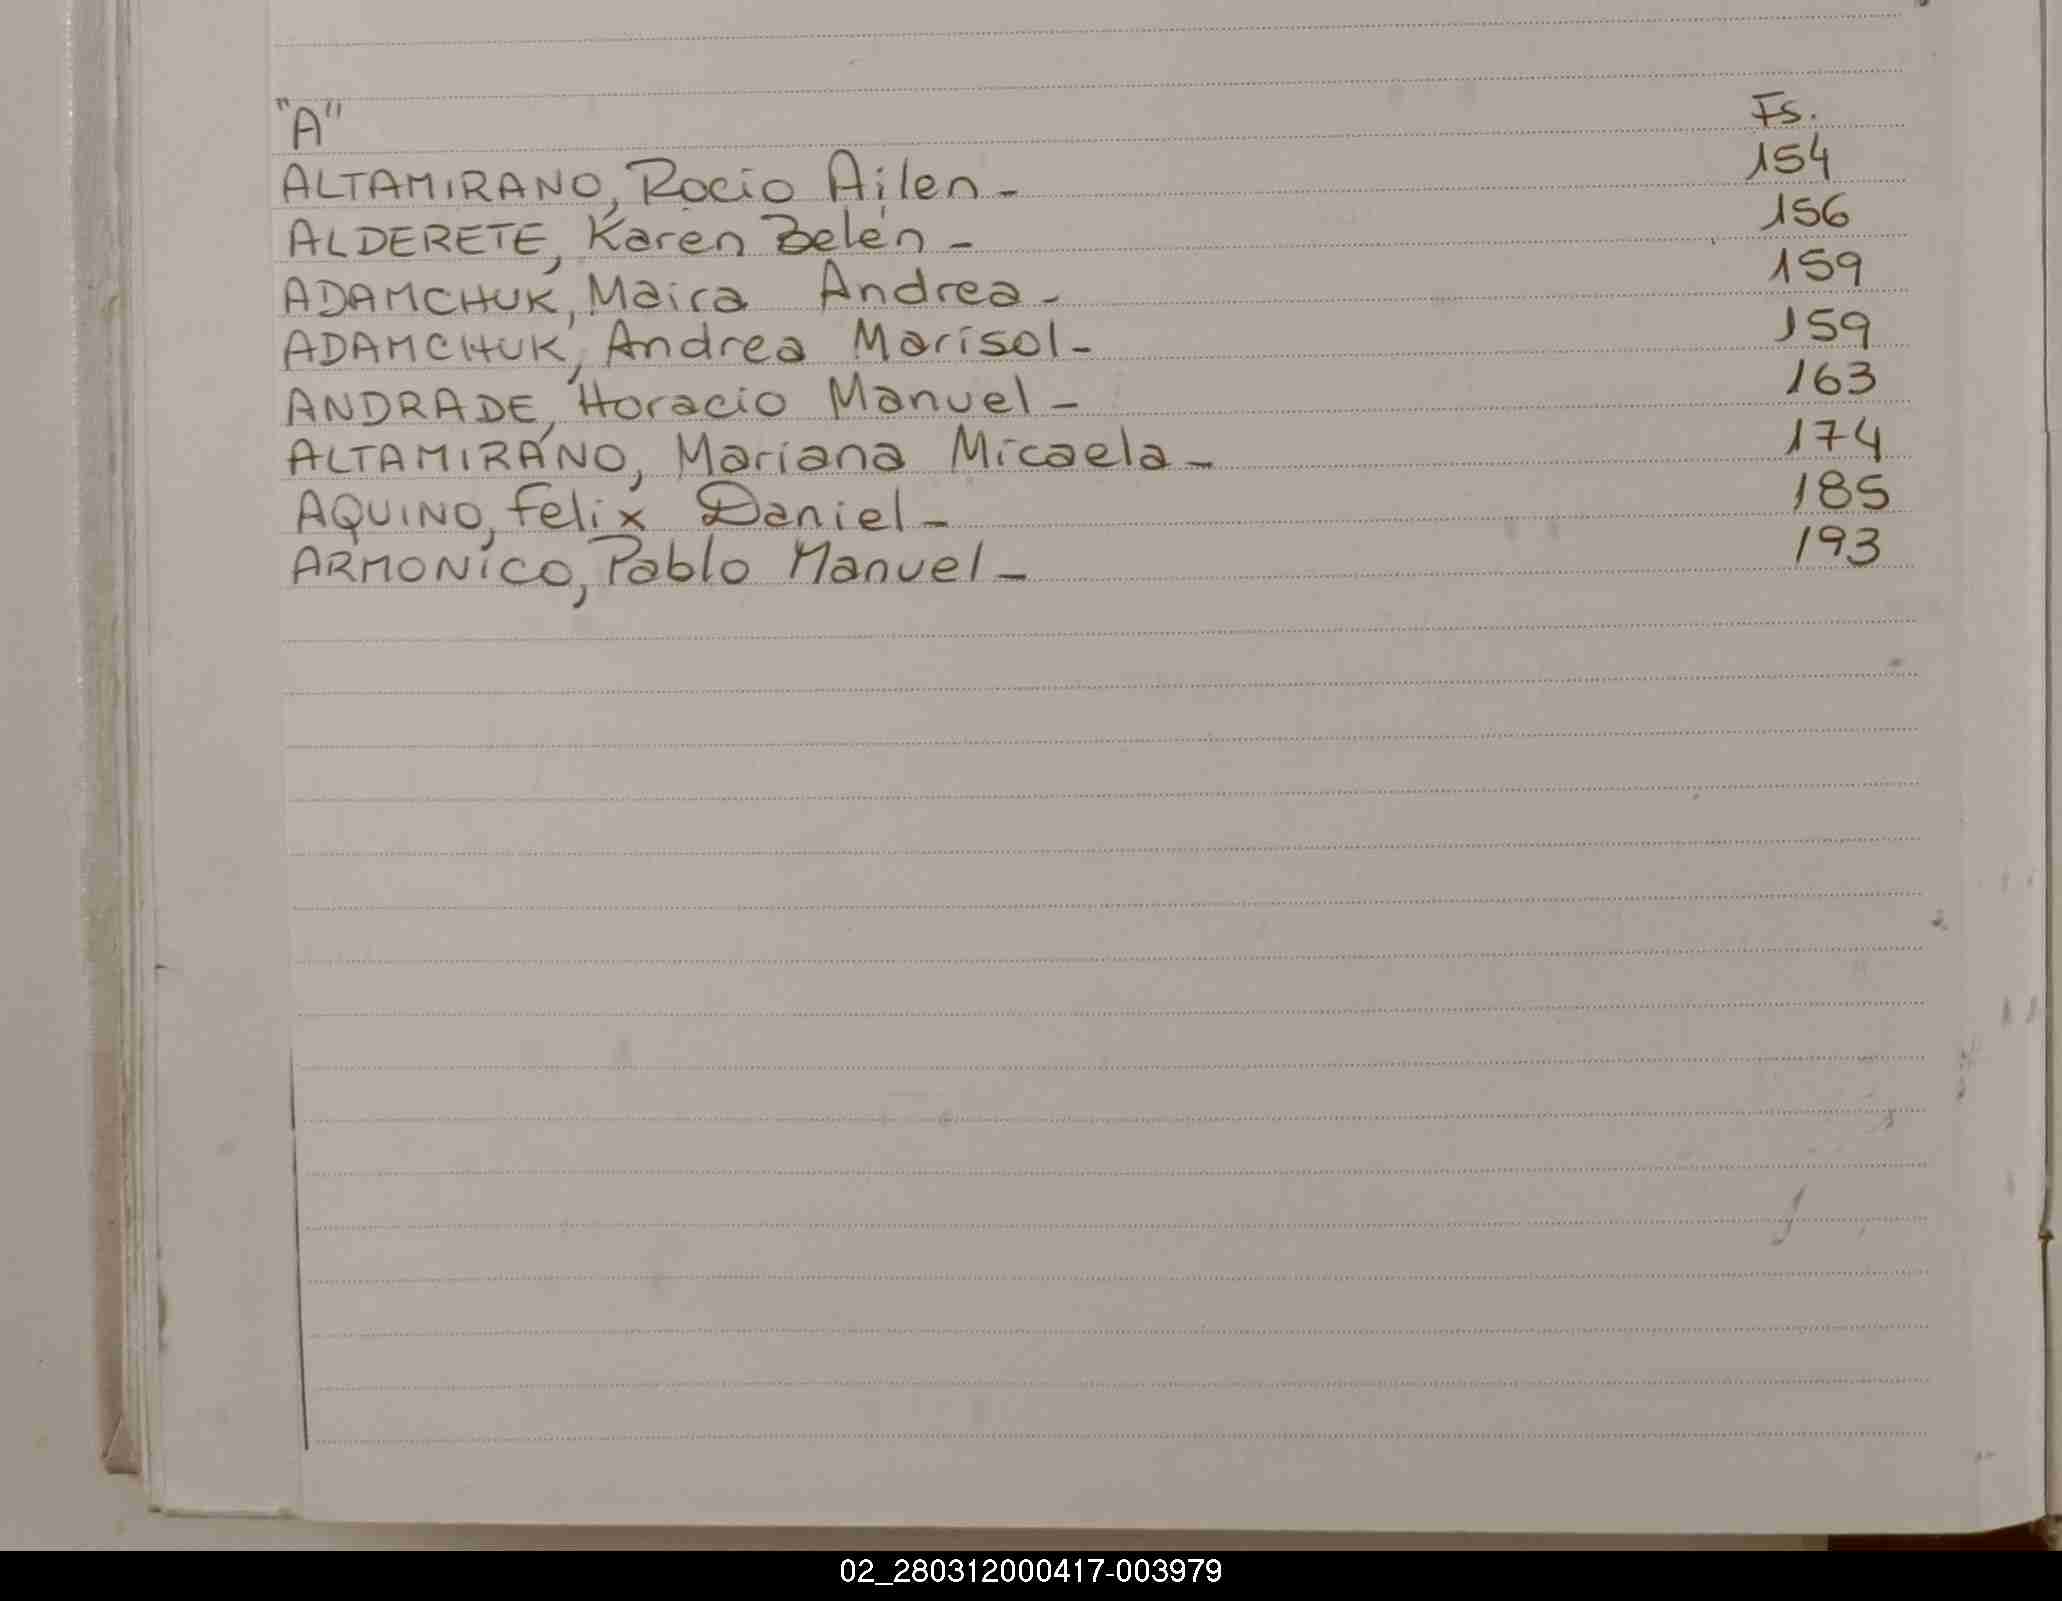 "A" Fs.
ALTAMIRANO, Rocio Ailen - 154
ALDERETE, Karen Belén - 156
ADAMCHUK, Maira Andrea - 159
ADAMCHUK, Andrea Marisol - 159
ANDRADE, Horacio Manuel - 163
ALTAMIRANO, Mariana Micaela - 174
AQUINO, Felix Daniel - 185
ARMONICO, Pablo Manuel - 193
02_280312000417-003979